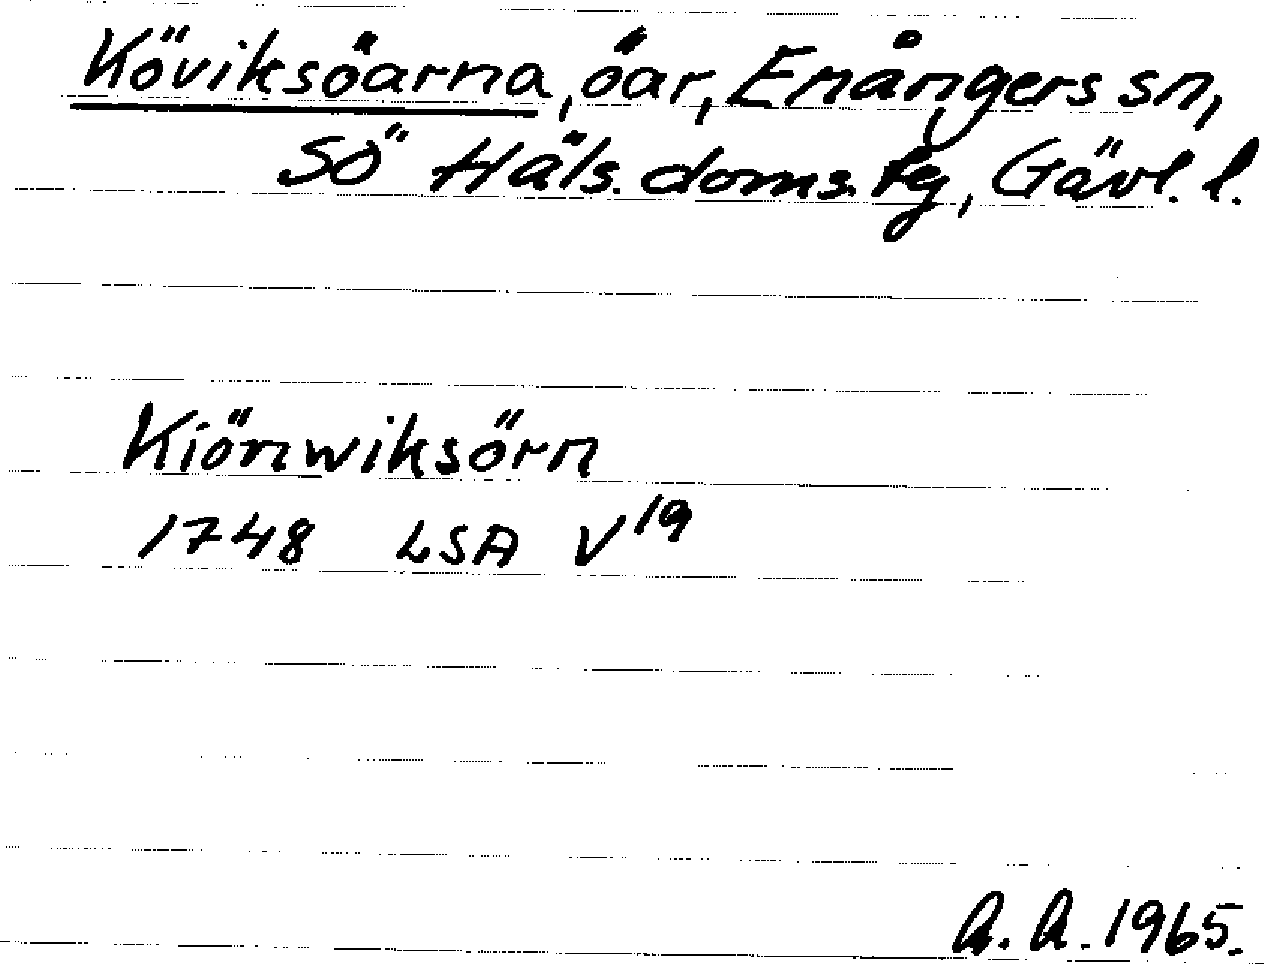 Köviksöarna, öar, Enångers sn,
SÖ Häls. doms. fg, Gävl. l.
Kiönwiksörn
1748 LSA V19
A. A. 1965.